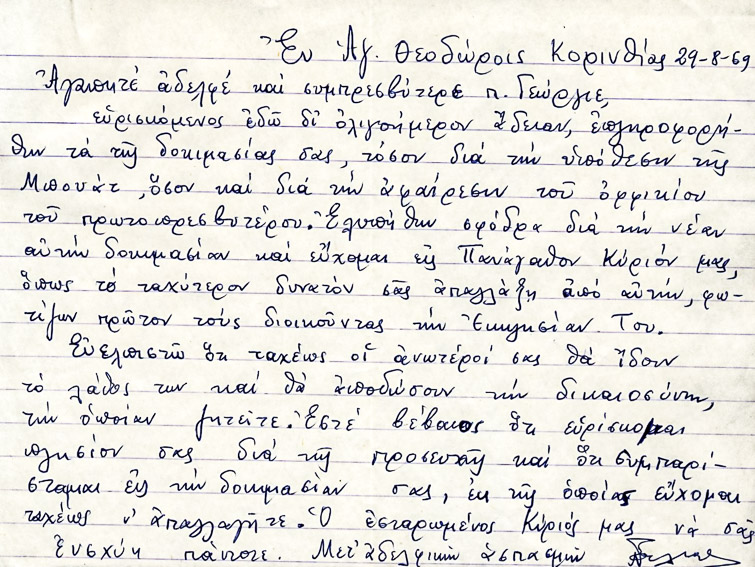 Ἐν Ἁγ. Θεοδώροις Κορινθίας 29-8-69
Ἀγαπητέ ἀδελφέ καί συμπρεσβύτερε π. Γεώργιε,
εὑρισκόμενος ἐδῶ δι' ὀλιγοήμερον ἄδειαν, ἐπληροφορή-
θην τά τῆς δοκιμασίας σας, τόσον διά τήν ὑπόθεσιν τῆς
Μπουάτ, ὅσον καί διά τήν ἀφαίρεσιν τοῦ ὀφφικίου
τοῦ πρωτοπρεσβυτέρου. Ἐλυπήθην σφόδρα διά τήν νέαν
αὐτήν δοκιμασίαν καί εὔχομαι εἰς Πανάγαθον Κύριόν μας,
ὅπως τό ταχύτερον δυνατόν σᾶς ἀπαλλάξῃ ἀπό αὐτήν, φω-
τίζων πρῶτον τούς διοικοῦντας τήν Ἐκκλησίαν Του.
Εὐελπιστῶ ὅτι ταχέως οἱ ἀνωτέροί σας θά ἴδουν
τό λάθος των καί θά ἀποδώσουν τήν δικαιοσύνην,
τήν ὁποίαν ζητεῖτε. Ἐστέ βέβαιος ὅτι εὑρίσκομαι
πλησίον σας διά τῆς προσευχῆς καί ὅτι συμπαρί-
σταμαι εἰς τήν δοκιμασίαν σας, ἐκ τῆς ὁποίας εὔχομαι
ταχέως ν' ἀπαλλαγῆτε. Ὁ ἐσταυρωμένος Κύριός μας νά σας
ἐνισχύῃ πάντοτε. Μετ' ἀδελφικῶν ἀσπασμῶν